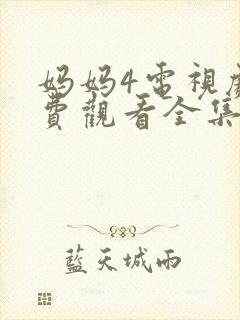 妈妈4電視劇
費觀看全集
藍天城雨